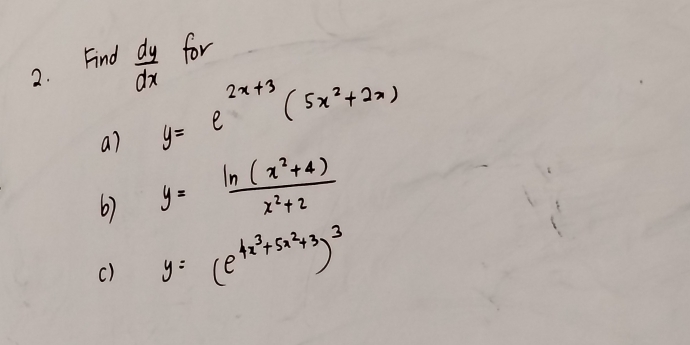 2. Find dy/dx for
a) y = e^{2x+3} (5x²+2x)
b) y = ln (x²+4) / x²+2
c) y = (e^{4x³+5x²+3})³